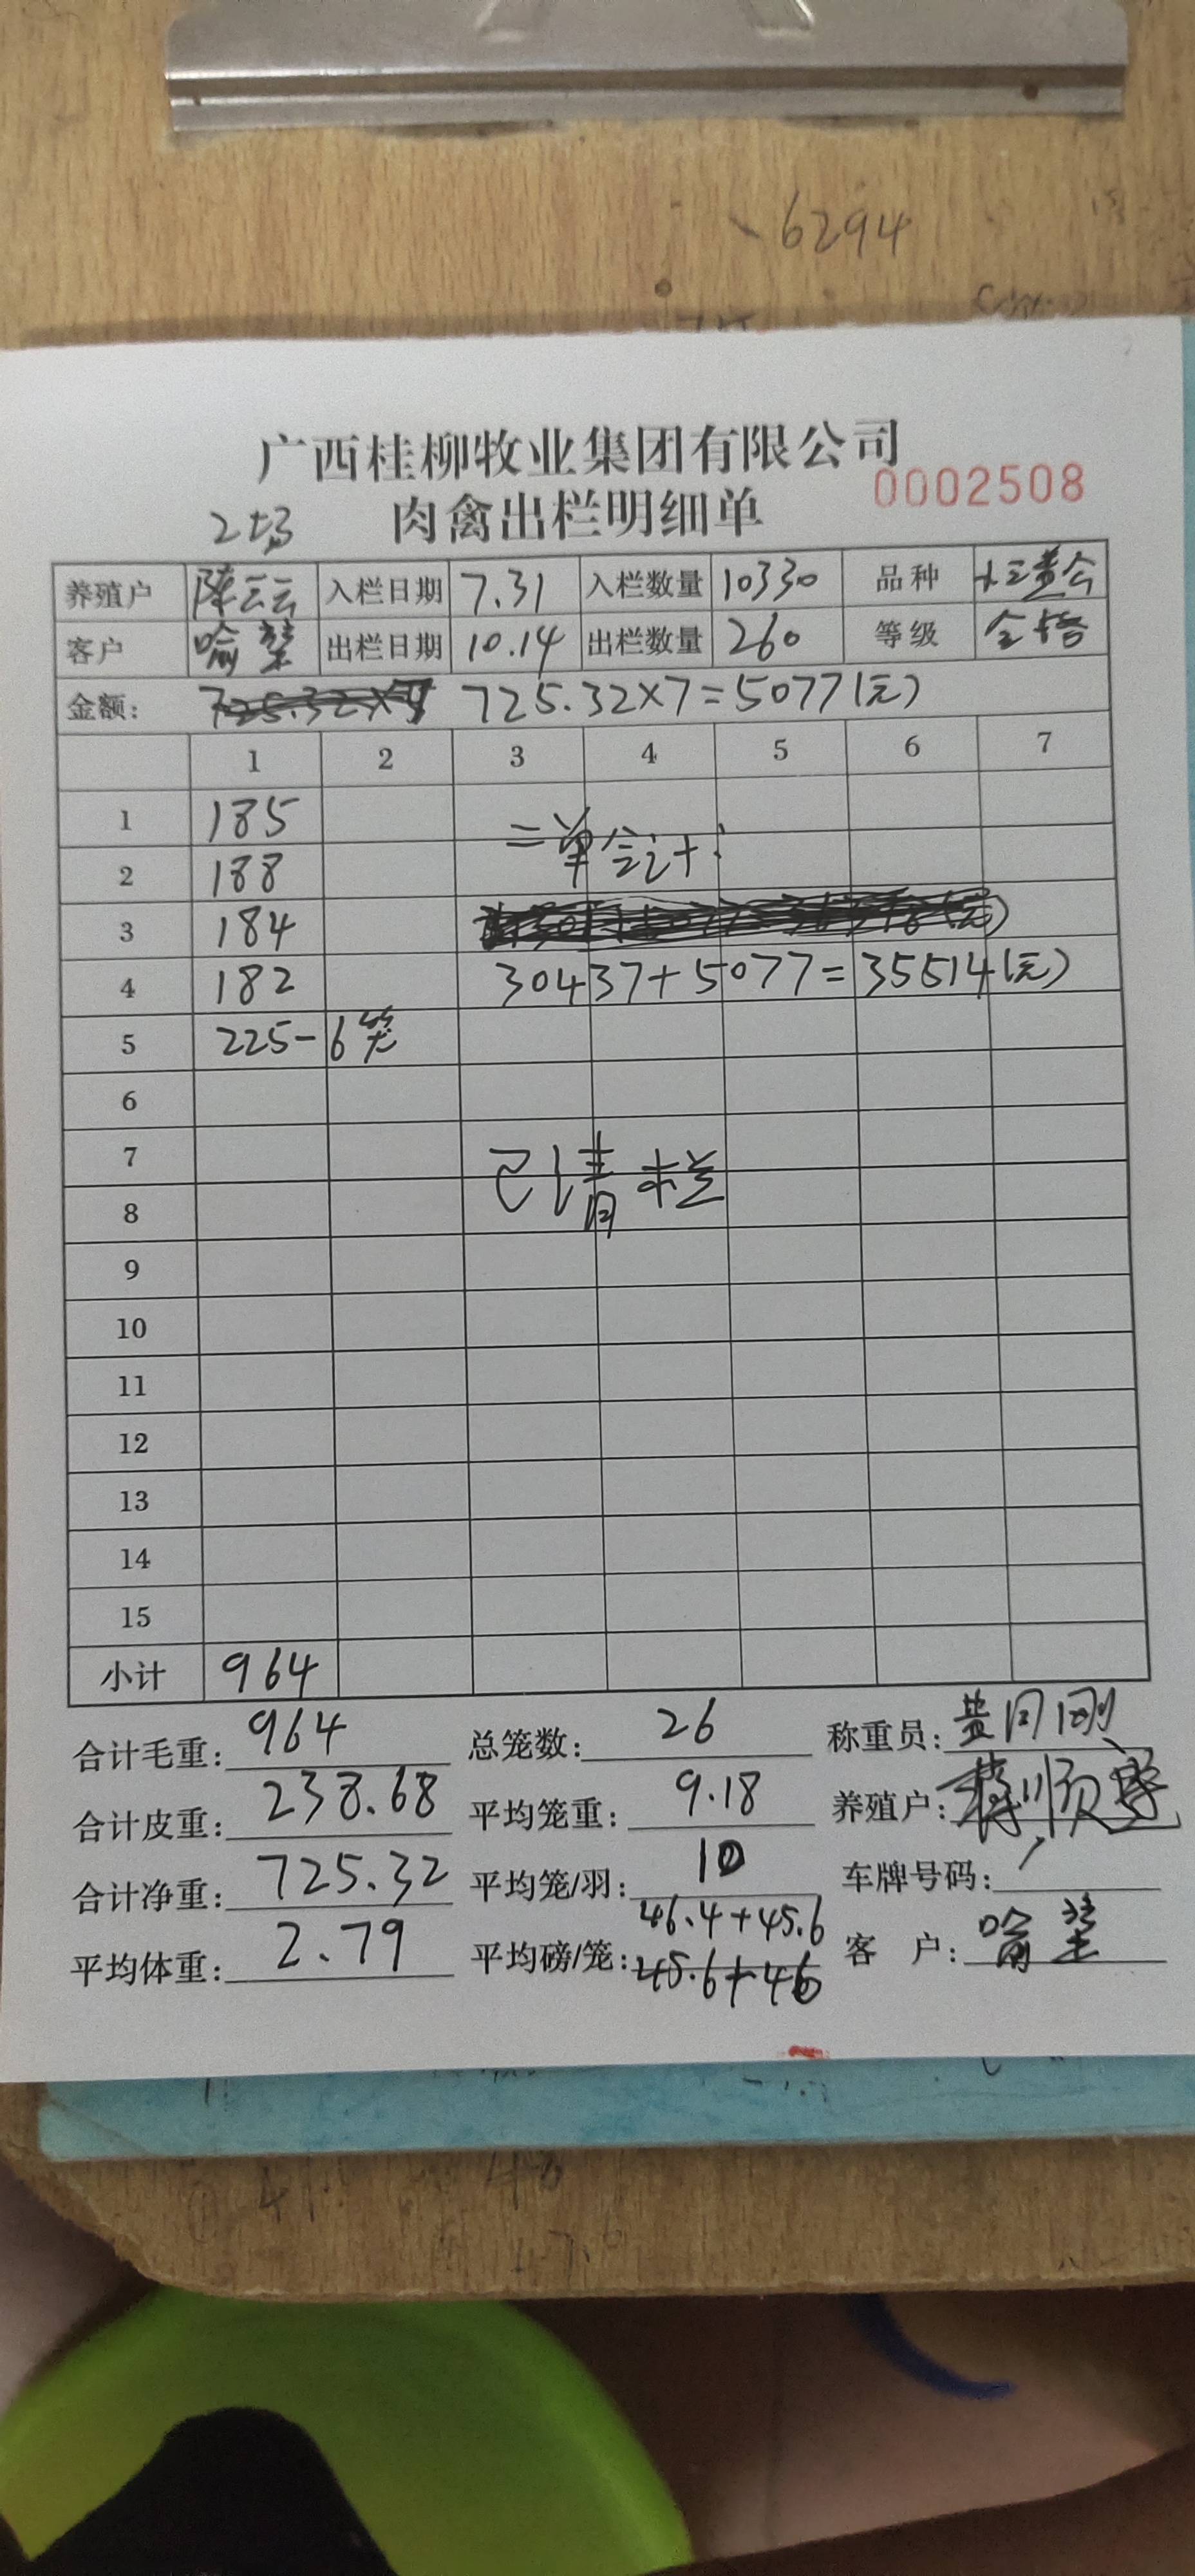 6294
广西桂柳牧业集团有限公司
肉禽出栏明细单 0002508
2场
养殖户 陈云云 入栏日期 7.31 入栏数量 10330 品种
客户 喻莹 出栏日期 10.14 出栏数量 260 等级
金额: 725.32×7 725.32×7=5077(元)
1 2 3 4 5 6 7
1 185
二单合计:
2 188
3 184
4 182 30437+5077=35514(元)
5 225-6笼
6
7
已清栏
8
9
10
11
12
13
14
15
小计 964
合计毛重: 964 总笼数: 26 称重员:
合计皮重: 238.68 平均笼重: 9.18 养殖户:
合计净重: 725.32 平均笼/羽: 10 车牌号码: /
平均体重: 2.79 平均磅/笼: 46.4+45.6 客 户: 喻莹
45.6+46